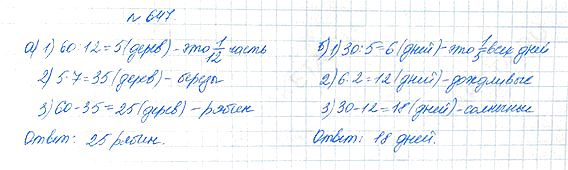 № 647
а) 1) 60:12=5(дерев)-это 1/12 часть
2) 5·7=35(дерев)-березы
3) 60-35=25(дерев)-рябин
Ответ: 25 рябин.
б) 1) 30:5=6(дней)-это 1/5 всех дней
2) 6·2=12(дней)-дождливые
3) 30-12=18(дней)-солнечные
Ответ: 18 дней.